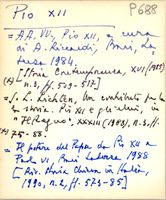 Pio XII
P688
= AA. VV., Pio XII, a cura
di A. Riccardi, Bari, La-
terza 1984.
[Storia Contemporanea, XVI (1985)
n. 3, pp. 509-517]
= J. L.
la storia. Pio XII e gli ebrei, in
"Il Regno", XXXIII (1988), n. 3, pp.
75-88.
= Il potere del Papa da Pio XII a
Paolo VI, Bari, Laterza, 1988
[Riv. Storia Chiesa in Italia,
1990, n. 2, pp. 573-85]